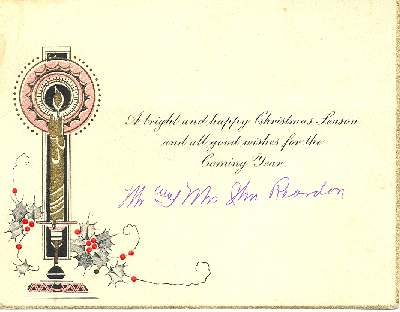 A bright and happy Christmas Season
and all good wishes for the
Coming Year
Mr and Mrs